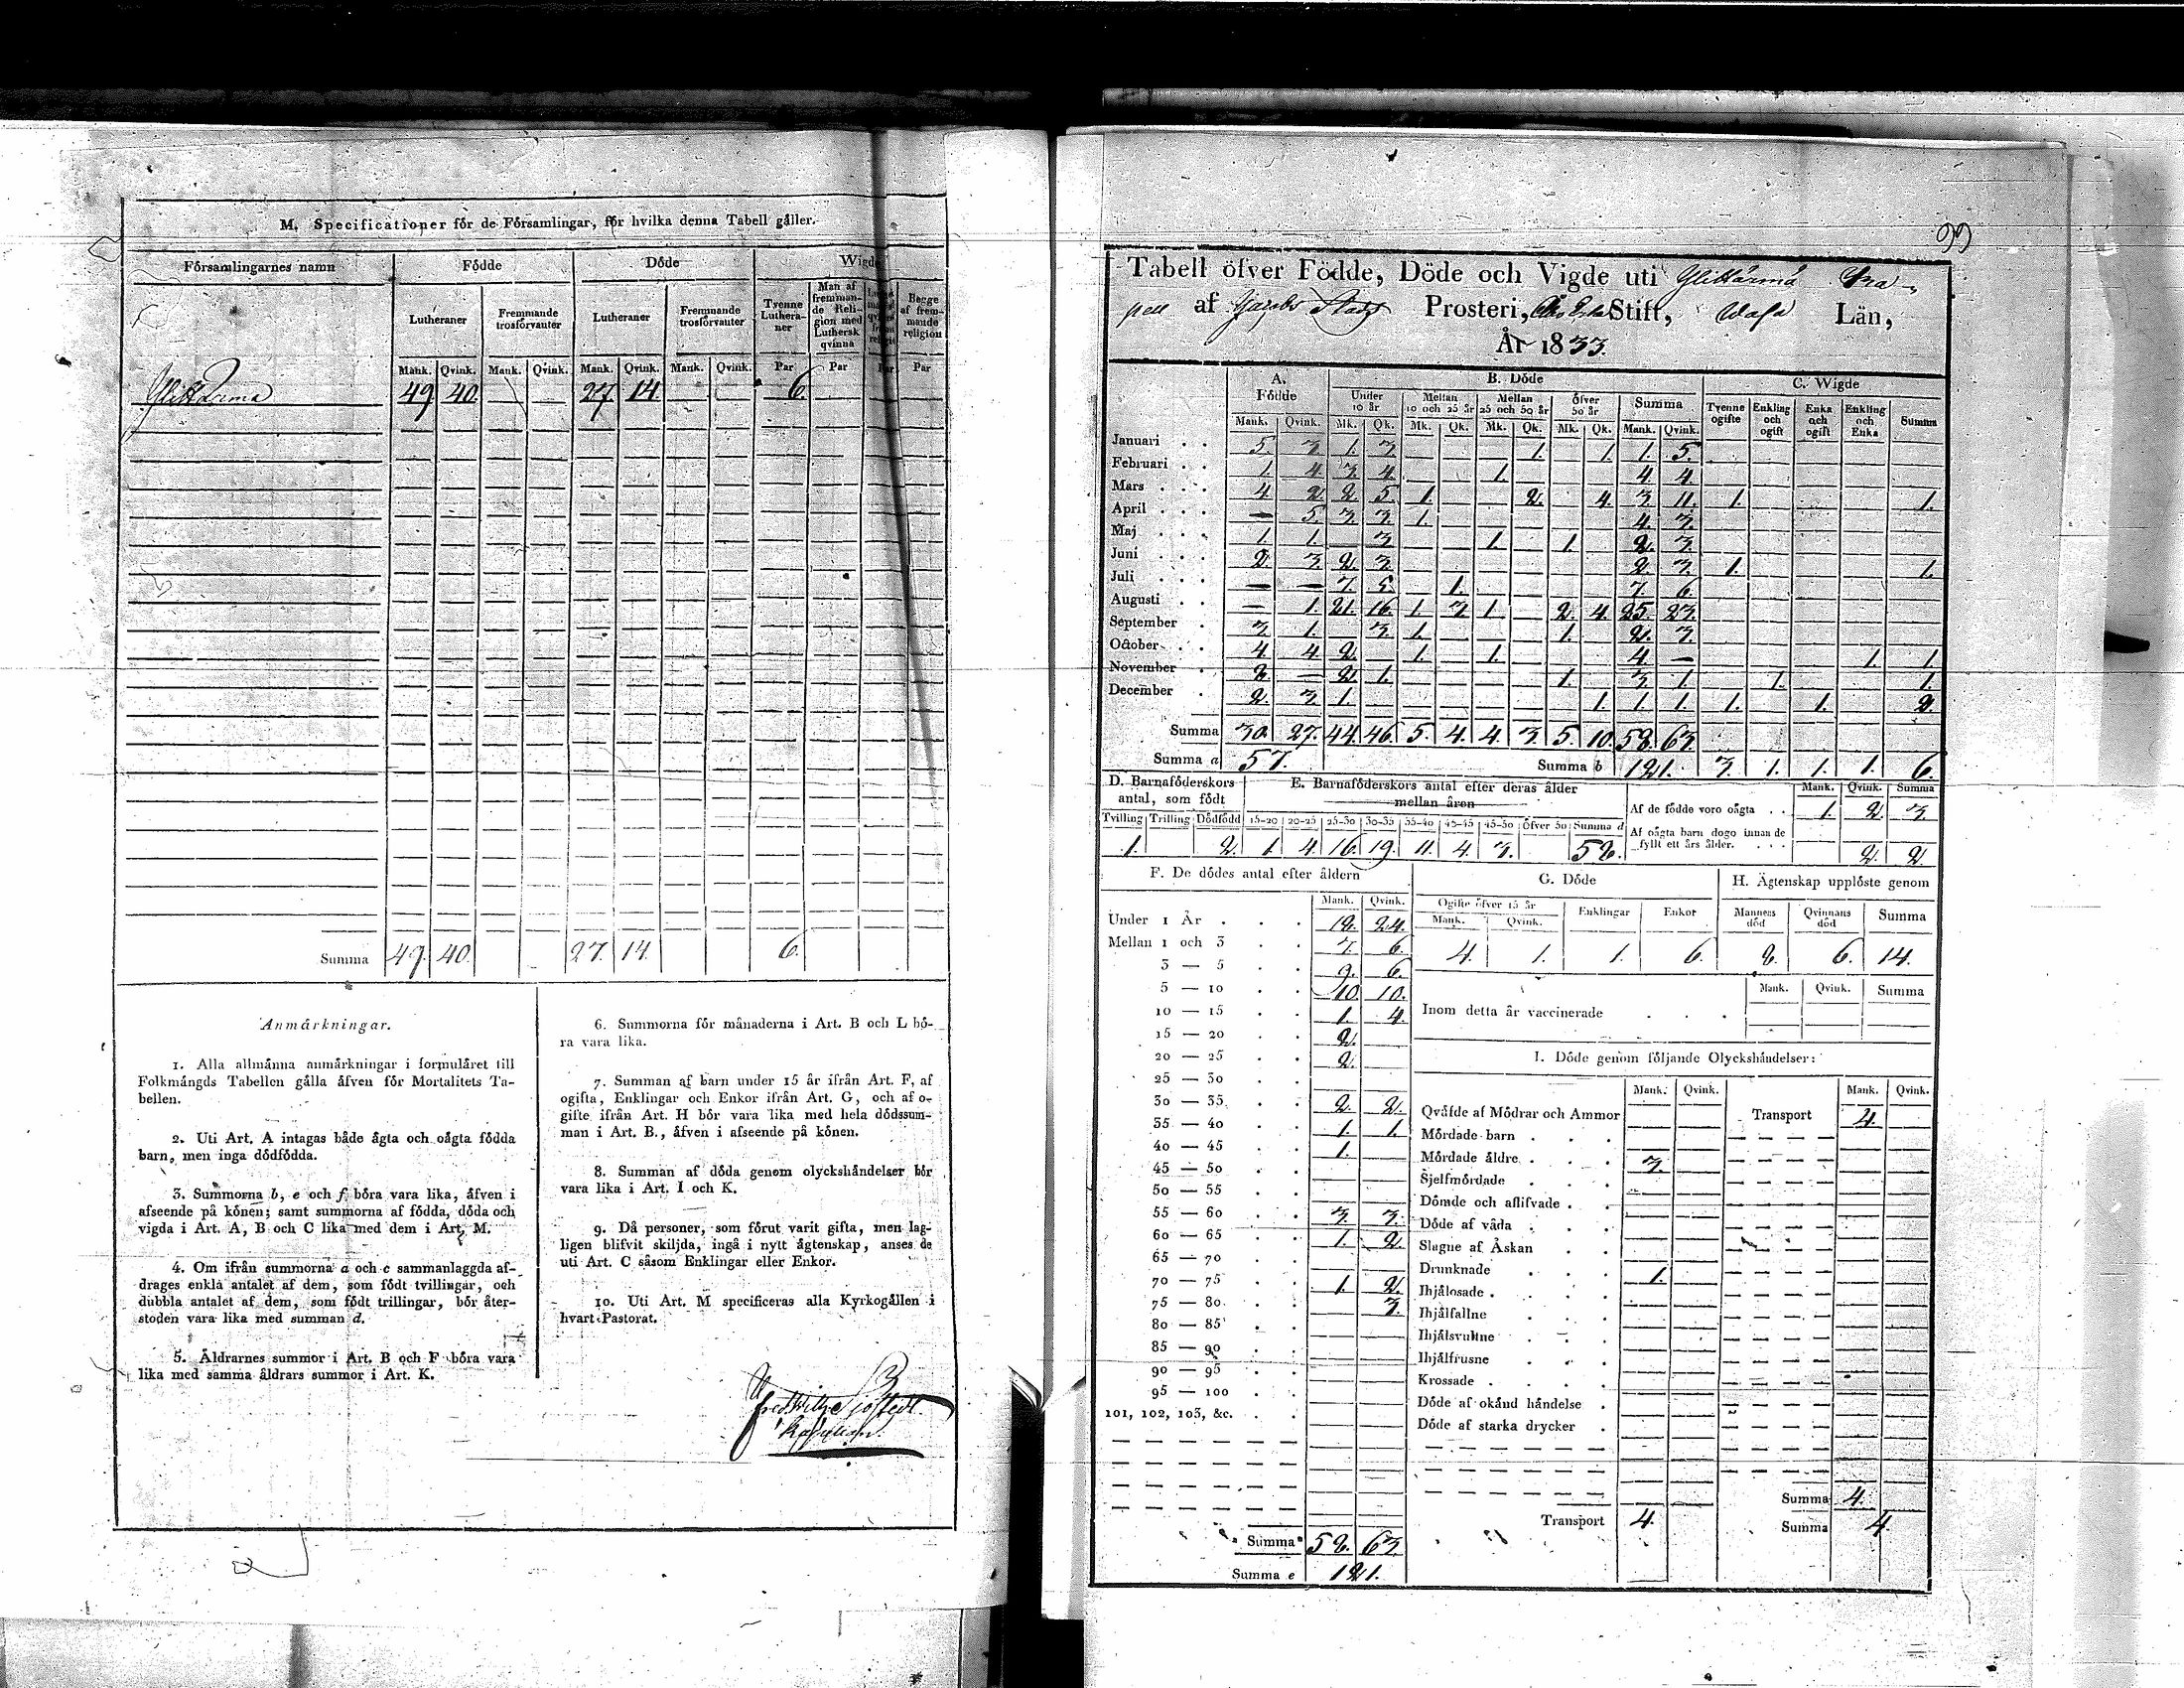 M. Specificationer för de Församlingar, för hvilka denna Tabell gäller.
Församlingarnes namn Födde Döde Wigde
Lutheraner Fremmande trosförvanter Lutheraner Fremmande trosförvanter Tvenne Lutheraner Man af fremmande Religion med Luthersk qvinna Begge af fremmande religion
Mank. Qvink. Mank. Qvink. Mank. Qvink. Mank. Qvink. Par Par Par Par
49 40. 27 14. 6.
Summa 49. 40. 27. 14. 6.
Anmärkningar.
1. Alla allmänna anmärkningar i formuläret till
Folkmängds Tabellen gälla äfven för Mortalitets Ta-
bellen.
2. Uti Art. A intagas både ägta och oägta födda
barn, men inga dödfödda.
3. Summorna b, e och f, böra vara lika, äfven i
afseende på könen; samt summorna af födda, döda och
vigda i Art. A, B och C lika med dem i Art. M.
4. Om ifrån summorna a och c sammanlaggda af-
drages enkla antalet af dem, som födt tvillingar, och
dubbla antalet af dem, som födt trillingar, bör åter-
stoden vara lika med summan d.
5. Åldrarnes summor i Art. B och F böra vara
lika med samma åldrars summor i Art. K.
6. Summorna för månaderna i Art. B och L bö-
ra vara lika.
7. Summan af barn under 15 år ifrån Art. F, af
ogifta, Enklingar och Enkor ifrån Art. G, och af o-
gifte ifrån Art. H bör vara lika med hela dödssum-
man i Art. B., äfven i afseende på könen.
8. Summan af döda genom olyckshändelser bör
vara lika i Art. I och K.
9. Då personer, som förut varit gifta, men lag-
ligen blifvit skiljda, ingå i nytt ägtenskap, anses de
uti Art. C såsom Enklingar eller Enkor.
10. Uti Art. M specificeras alla Kyrkogällen i
hvart Pastorat.
99
Tabell öfver Födde, Döde och Vigde uti
af Prosteri, Stift, Wasa Län,
År 1833.
A. Födde B. Döde C. Wigde
Under 10 år Mellan 10 och 25 år Mellan 25 och 50 år Öfver 50 år Summa Tvenne ogifte Enkling och ogift Enka och ogift Enkling och Enka Summa
Mank. Qvink. Mk. Qk. Mk. Qk. Mk. Qk. Mk. Qk. Mank. Qvink.
Januari 5. 3. 1. 3. 1. 1. 1. 5.
Februari 1. 4. 3. 4. 1. 4. 4.
Mars 4. 2. 2. 5. 1. 2. 4. 3. 11. 1. 1.
April — 5. 3. 3. 1. 4. 3.
Maj 1. 1. 3. 1. 1. 2. 3.
Juni 2. 3. 2. 3. 2. 3. 1. 1.
Juli — — 7. 5. 1. 7. 6.
Augusti — 1. 21. 16. 1. 3. 1. 2. 4. 25. 23.
September 3. 1. 3. 1. 1. 2. 3.
October 4. 4. 2. 1. 1. 4. — 1. 1.
November 8. — 2. 1. 1. 3. 1. 1. 1.
December 2. 3. 1. 1. 1. 1. 1. 1. 2.
Summa 30. 27. 44. 46. 5. 4. 4. 3. 5. 10. 58. 63.
Summa a 57. Summa b 121. 3. 1. 1. 1. 6.
D. Barnaföderskors antal, som födt
Tvilling Trilling Dödfödd
1. 2.
E. Barnaföderskors antal efter deras ålder mellan åren
15-20 20-25 25-30 30-35 35-40 40-45 45-50 Öfver 50 Summa d
1. 4. 16. 19. 11. 4. 3. 58.
Mank. Qvink. Summa
Af de födde voro oägta 1. 2. 3.
Af oägta barn dogo innan de
fyllt ett års ålder. 2. 2.
F. De dödes antal efter åldern
Mank. Qvink.
Under 1 År 18. 24.
Mellan 1 och 3 7. 6.
3 — 5 9. 6.
5 — 10 10. 10.
10 — 15 1. 4.
15 — 20 2.
20 — 25 2.
25 — 30
30 — 35 2. 2.
35 — 40 1. 1.
40 — 45 1.
45 — 50
50 — 55
55 — 60 3. 3.
60 — 65 1. 2.
65 — 70
70 — 75 1. 2.
75 — 80 3.
80 — 85
85 — 90
90 — 95
95 — 100
101, 102, 103, &c.
Summa 58. 63.
Summa e 121.
G. Döde
Ogifte öfver 15 år Enklingar Enkor
Mank. Qvink.
4. 1. 1. 6.
H. Ägtenskap upplöste genom
Mannens död Qvinnans död Summa
8. 6. 14.
Mank. Qvink. Summa
Inom detta år vaccinerade
I. Döde genom följande Olyckshändelser:
Mank. Qvink. Mank. Qvink.
Qväfde af Mödrar och Ammor Transport 4.
Mördade barn
Mördade äldre 3.
Sjelfmördade
Dömde och aflifvade
Döde af våda
Slagne af Åskan
Drunknade 1.
Ihjälosade
Ihjälfallne
Ihjälsvultne
Ihjälfrusne
Krossade
Döde af okänd händelse
Döde af starka drycker
Summa 4.
Transport 4. Summa 4.